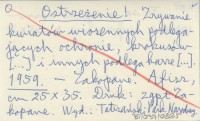 Ostrzeżenie! Zrywanie
kwiatów wiosennych podlega-
jących ochronie, krokusów
[...] i innych podlega karze [...].
1959. - Zakopane. Afisz,
cm 25 x 35. Druk: zgpt Za-
kopane. Wyd: Tatrzański Park Narodowy.